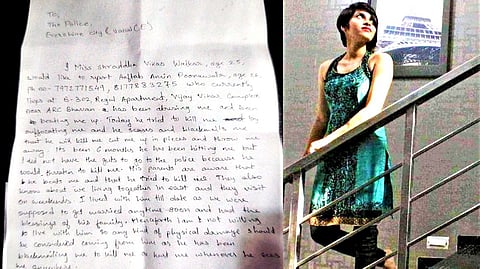 To
The Police,
Evershine City (Vasai(E))
I Miss Shraddha Vikas Walkar, age 25,
would like to report Aaftab Amin Poonawala, age 26
Ph no- 8177833275 who currently
lives at B-302 Regal Apartment, Vijay Vihar Complex
near has been abusing me and
beating me up. Today he tried to kill me by
suffocating me and he scares and blackmails me
that he will kill me, cut me up in pieces and throw me
away. Its been 6 months he has been hitting me but
I did not have the guts to go to the police because he
would threaten to kill me. His parents are aware that
he beats me and that he tried to kill me. They also
know about we living together in east and they visit
on weekends. I lived with him till date as we were
supposed to get married anytime soon and had the
blessings of his family. Henceforth I am not willing
to live with him so any kind of physical damage should
be considered coming from him as he has been
blackmailing me to kill me or hurt me whenever he sees
me anywhere